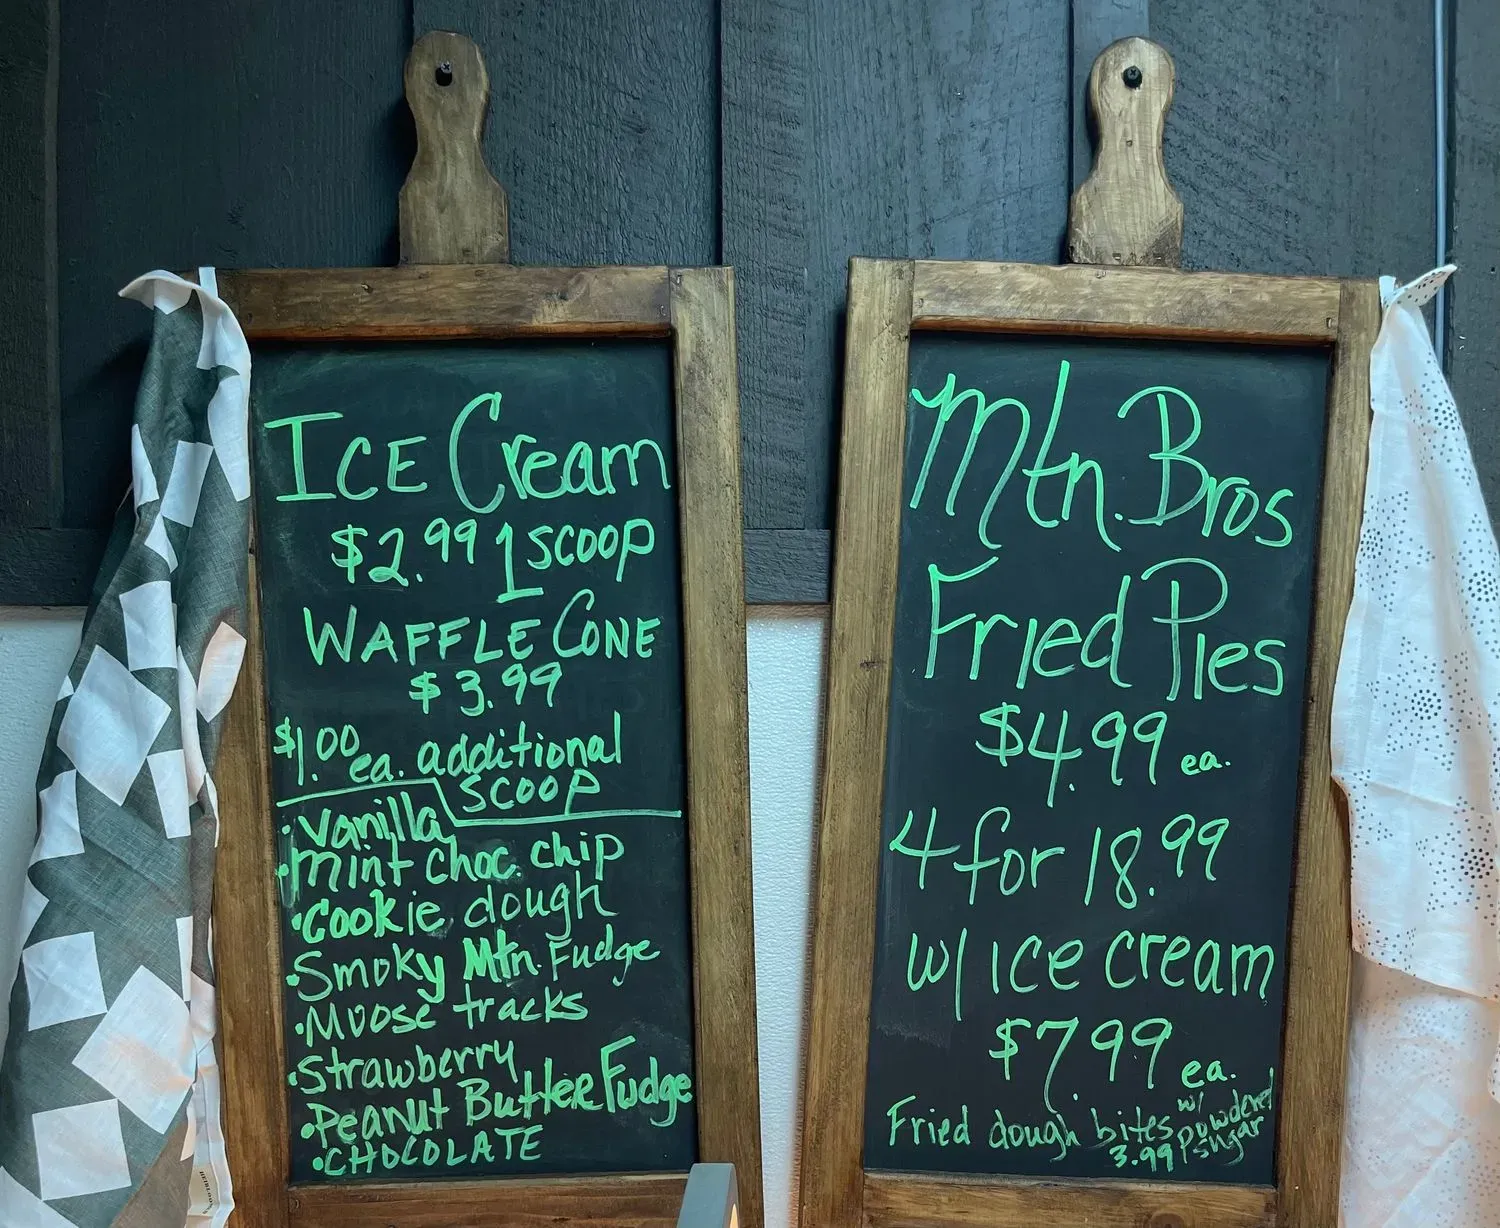 ICE Cream
$2.99 1 SCOOP
WAFFLE CONE
$3.99
$1.00 ea. additional
scoop
• Vanilla
• Mint choc. chip
• Cookie dough
• Smoky Mtn. Fudge
• Moose tracks
• Strawberry
• Peanut Butter Fudge
• CHOCOLATE
Mtn. Bros
Fried Pies
$4.99 ea.
4 for 18.99
w/ ice cream
$7.99 ea.
Fried dough bites w/ powdered sugar
3.99